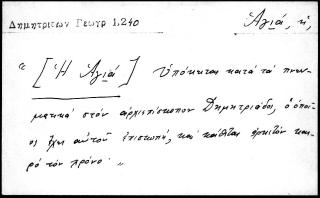 Δημητριεων Γεωγρ 1.240
Ἁγιά, ἡ,
“ [Ἡ Ἁγιά] Ὑπόκειται κατά τά πνευ-
ματικά στόν ἀρχιεπίσκοπον Δημητριάδος, ὁ ὁποῖ-
ος ἔχει αὐτοῦ ἐπισκοπή, καί κάθεται ἀρκετόν και-
ρό τόν χρόνο. „